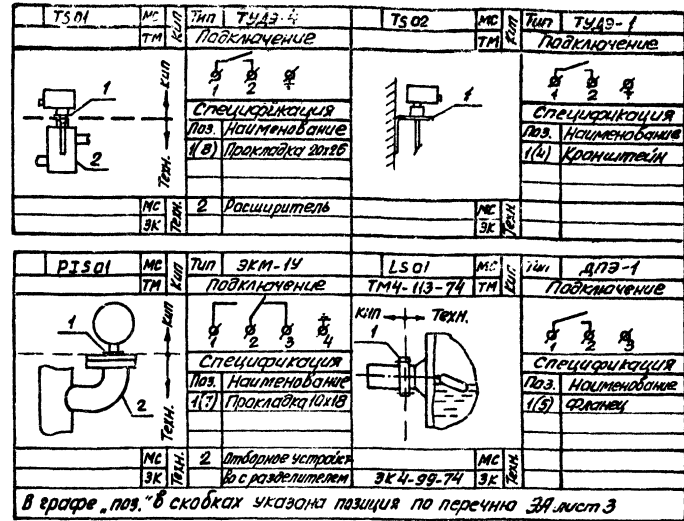 TS01 МС КИП Тип ТУДЭ-4
ТМ Подключение
КИП
1 2
1
Спецификация
Поз. Наименование
1(8) Прокладка 20х26
2
Техн.
МС Техн. 2 Расширитель
ЭК
TS02 МС КИП Тип ТУДЭ-1
ТМ Подключение
1 2
1
Спецификация
Поз. Наименование
1(4) Кронштейн
МС Техн.
ЭК
PIS01 МС КИП Тип ЭКМ-1У
ТМ Подключение
КИП
1
1 2 3 4
Спецификация
Поз. Наименование
1(7) Прокладка 10х18
2
Техн.
МС Техн. 2 Отборное устройст
ЭК во с разделителем
LS01 МС КИП Тип ДПЭ-1
ТМ4-113-74 ТМ Подключение
КИП Техн.
1
1 2 3
Спецификация
Поз. Наименование
1(5) Фланец
МС Техн.
ЭК4-99-74 ЭК
В графе „поз.“ в скобках указана позиция по перечню ЭА лист 3